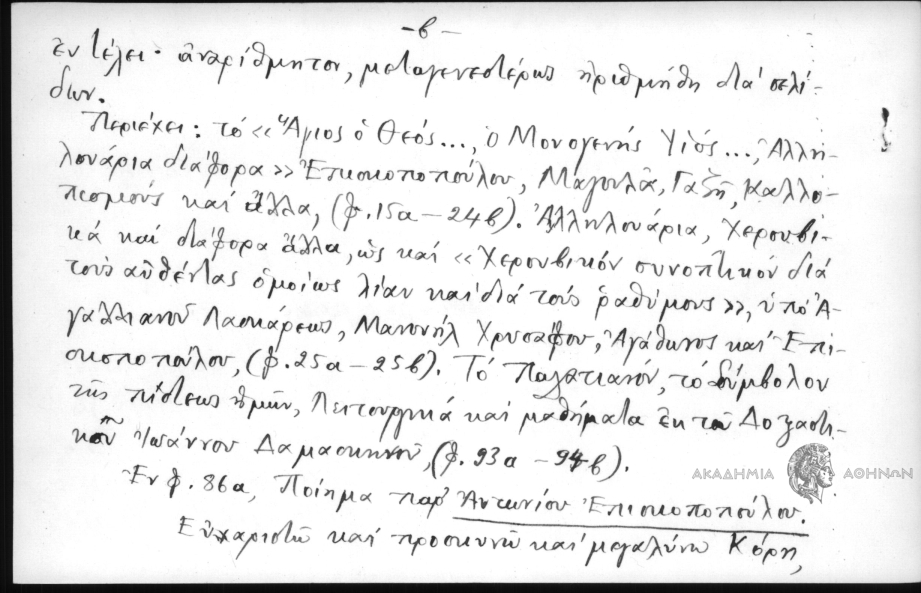 -β-
ἐν τέλει· ἀναρίθμητον, μεταγενεστέρως ἠριθμήθη διά σελί-
δων.
Περιέχει: τό «Ἅγιος ὁ Θεός..., ὁ Μονογενής Υἱός..., Ἀλλη-
λουάρια διάφορα» Ἐπισκοποπούλου, Μαγουλᾶ, Γαζῆ, Καλλο-
πισμούς καί ἄλλα, (φ. 15α – 24β). Ἀλληλουάρια, Χερουβι-
κά καί διάφορα ἄλλα, ὡς καί «Χερουβικόν συνοπτικόν διά
τούς αὐθέντας ὁμοίως λίαν καί διά τούς ῥαθύμους», ὑπό Ἀ-
γαλλιανοῦ Λασκάρεως, Μανουήλ Χρυσάφου, Ἀγάθωνος καί Ἐπι-
σκοποπούλου, (φ. 25α – 25β). Τό Παλατιανόν, τό σύμβολον
τῆς πίστεως ἡμῶν, Λειτουργικά καί μαθήματα ἐκ τοῦ Δοξαστι-
κοῦ Ἰωάννου Δαμασκηνοῦ, (φ. 93α – 94β).
Ἐν φ. 86α, Ποίημα παρ' Ἀντωνίου Ἐπισκοποπούλου.
Εὐχαριστῶ καί προσκυνῶ καί μεγαλύνω Κόρη,
ΑΚΑΔΗΜΙΑ ΑΘΗΝΩΝ